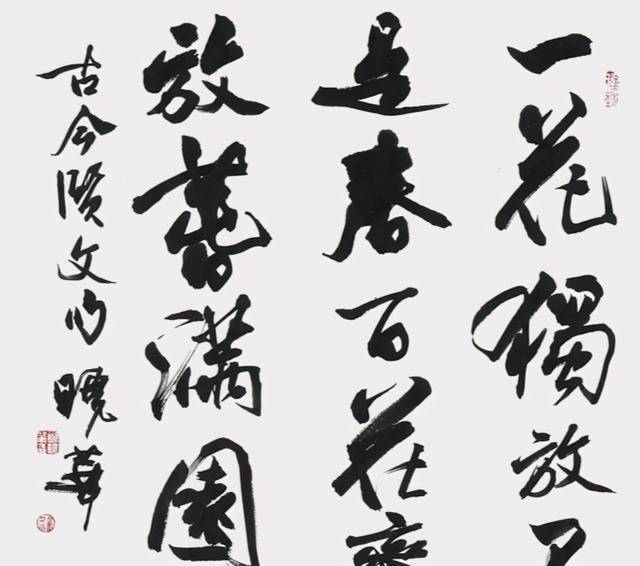 一花獨放
是春百花齊
放春滿園
古今賢文句 曉華